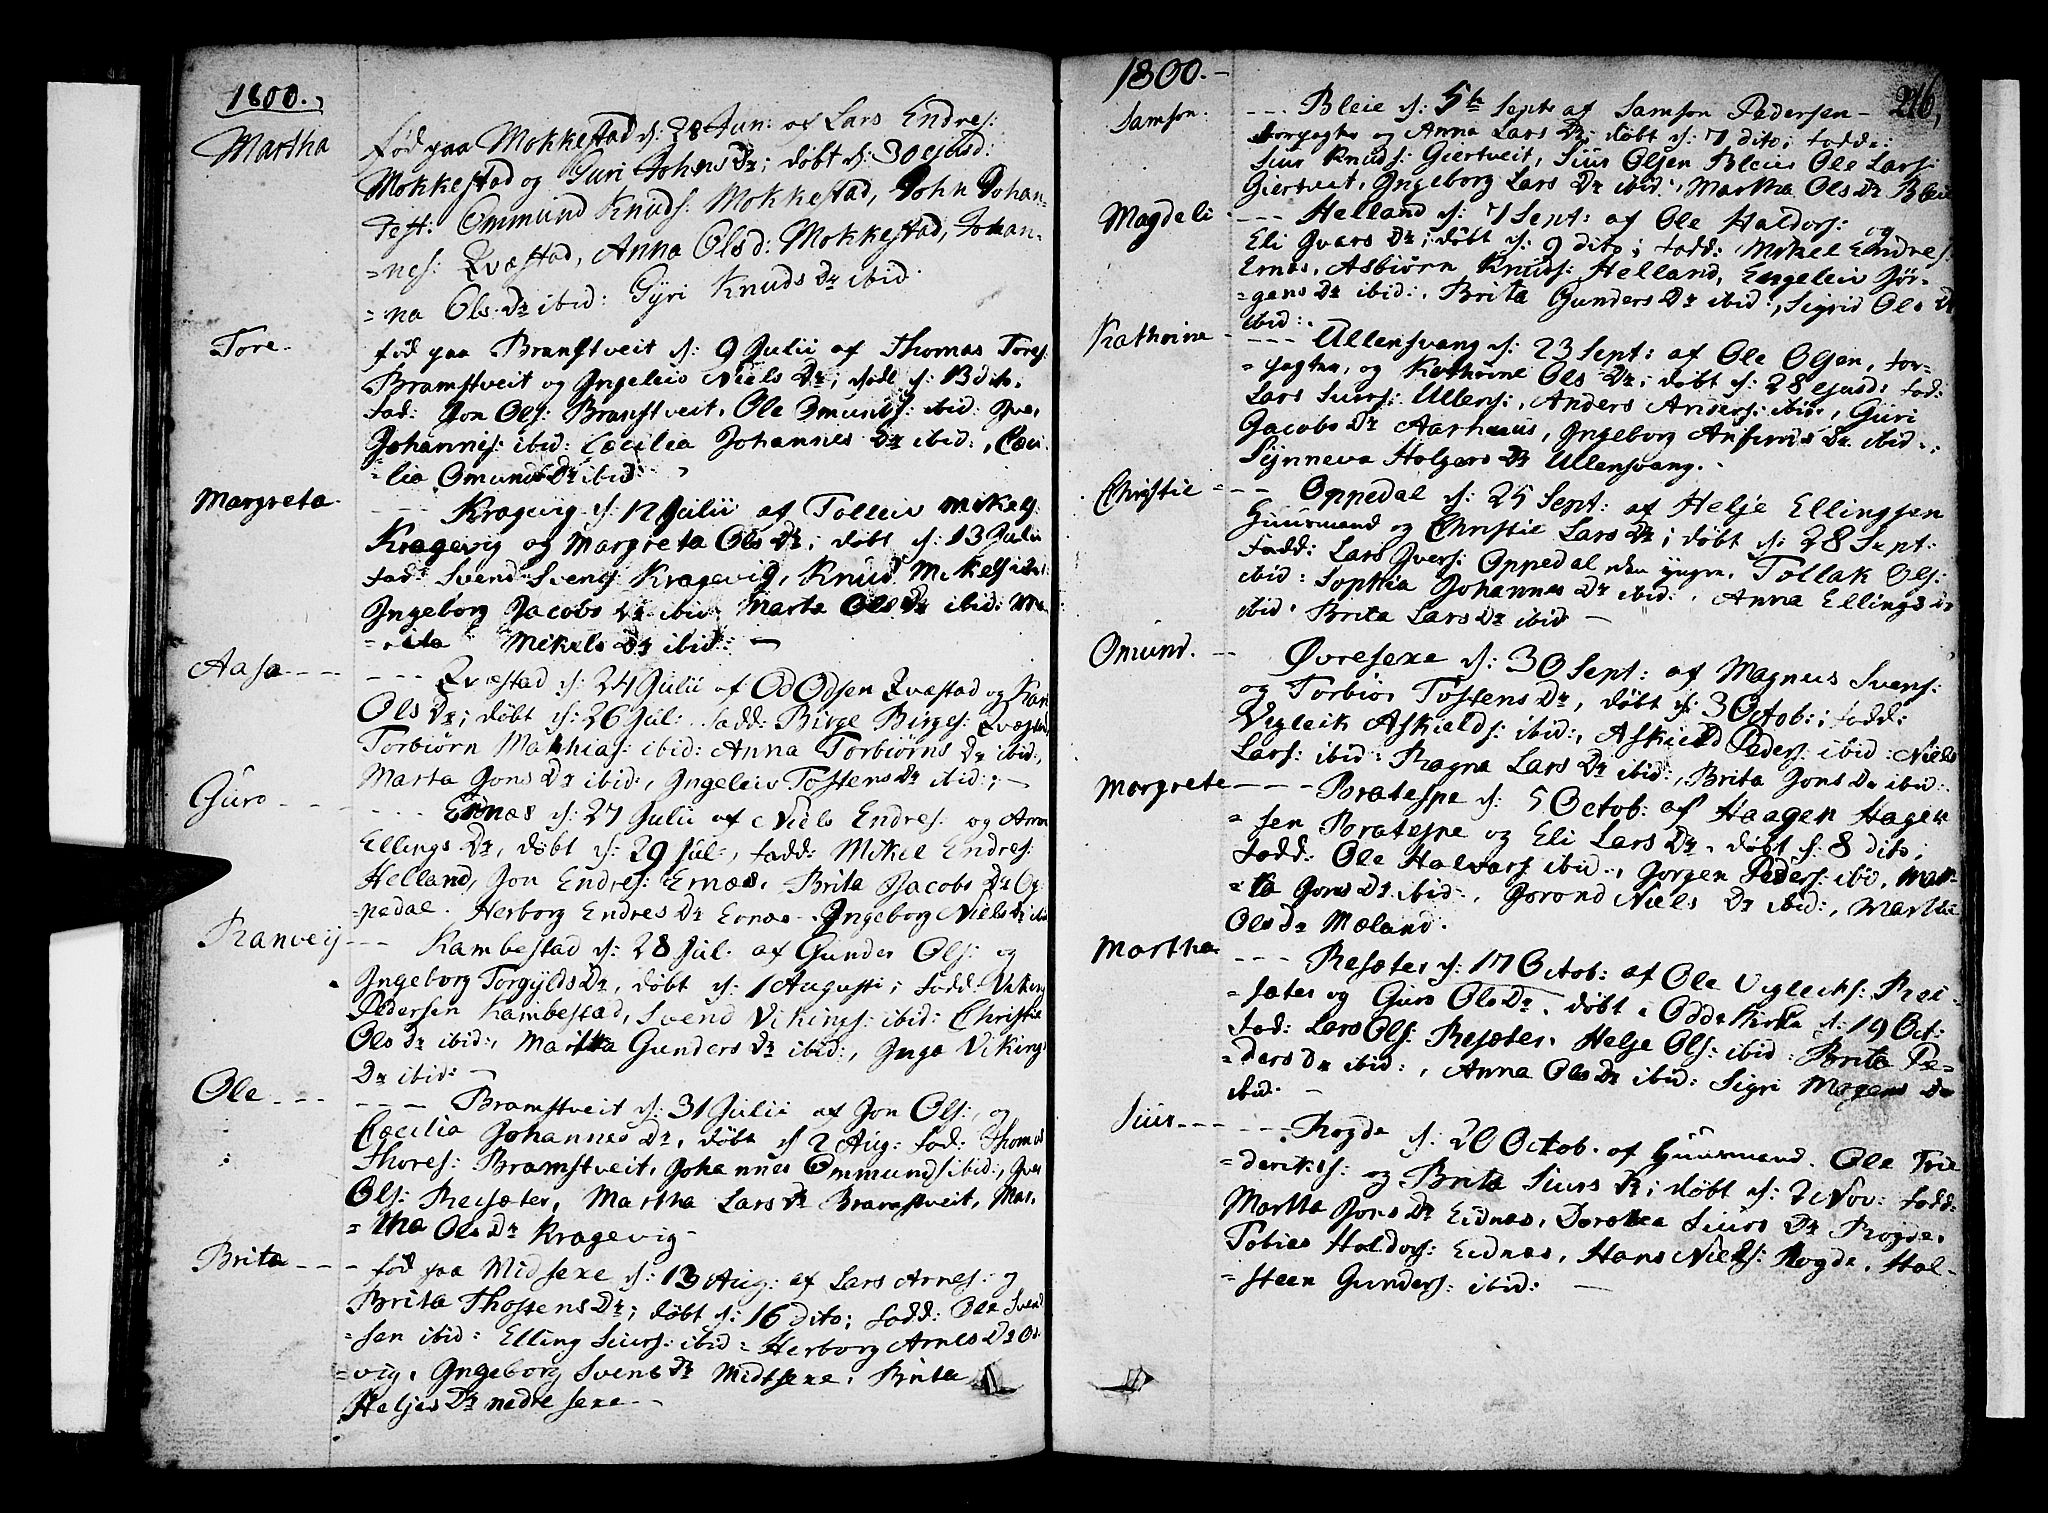 1800.
Martha
født paa Mokkestad d: 28 Jun: af Lars Endres:
Mokkestad og Guri Johns Dr; døbt d: 30 ejusd:
Test: Ommund Knuds: Mokkestad, John Johan-
=nes: Qvæstad, Anna Olsd: Mokkestad, Johan-
=na Ols Dr ibid: Gÿri Knuds Dr ibid:
Tore
født paa Bramstveit d: 9 Julii af Thomas Tores:
Bramstveit og Ingeleiv Niels Dr; døbt d: 13 dito.
Fad: Jon Ols: Bramstveit, Ole Omunds: ibid: Iver
Johannis: ibid: Cæcilia Johannes Dr ibid:, Cæci-
=lia Omunds Dr ibid:
Margreta
--- Kragevig d: 12 Julii af Tolleiv Mikels:
Kragevig og Margreta Ols Dr; døbt d: 13 Julii
Fad: Svend Svens: Kragevig, Knud Mikels: ibid:
Ingeborg Jacobs Dr ibid: Marta Ols Dr ibid:
Mikels Dr ibid: -
Aasa ---
--- Qvæstad d: 24 Julii af Od Odsen Qvæstad og Kari
Ols Dr; døbt d: 26 Jul: Fadd: Birge Birges: Qvæstad,
Torbiørn Mathias: ibid: Anna Torbiørns Dr ibid:,
Marta Jons Dr ibid:, Ingeleiv Tostens Dr ibid:; -
Guro ---
--- Ernæs d: 27 Julii af Niels Endres: og Anna
Ellings Dr, døbt d: 29 Jul:, Fadd: Mikel Endres:
Helland, Jon Endres: Ernæs, Brita Jacobs Dr Op-
=pedal. Herborg Endres Dr Ernæs. Ingeborg Niels Dr ibid
Ranveig
--- Kambestad d: 28 Jul. af Gunder Ols: og
Ingeborg Torgÿlds Dr, døbt d: 1 Augusti; Fadd: Viking
Pedersen Kambestad, Svend Vikings: ibid: Christie
Ols Dr ibid:, Martha Gunders Dr ibid:, Inga Vikings
Dr ibid: -
Ole ---
--- Bramstveit d: 31 Julii af Jon Ols:, og
Cæcilia Johannes Dr, døbt d 2 Aug: Fad: Thomas
Thores: Bramstveit, Johannes Ommunds: ibid:, Iver
Ols: Reisæter, Martha Lars Dr Bramstveit, Mar-
=tha Ols Dr Kragevig -
Brita ---
- født paa Midsexe d: 13 Aug: af Lars Arnes: og
Brita Thostens Dr; døbt d: 16 dito; Fadd: Ole Svend
=sen ibid: Elling Siurs: ibid: Herborg Arnes Dr
=vig, Ingeborg Svens Dr Midtsexe, Brita
Heljes Dr nedre sexe -
1800. -
216,
Samson
--- Bleie d: 5te Septr af Samson Pedersen -
Forpagter og Anna Lars Dr; døbt d: 7 dito; Fadd:
Siur Knuds: Giertveit, Siur Olsen Bleie Ole Lars:
Giertveit, Ingeborg Lars Dr ibid:, Martha Ols Dr Bleie
Magdeli
--- Helland d: 7 Sept: af Ole Haldors: og
Eli Ivars Dr; døbt d: 9 dito; Fadd: Mikel Endres:
Ernæs, Asbiørn Knuds: Helland, Engeleiv Jør-
=gens Dr ibid:, Brita Gunders Dr ibid:, Sigrid Ols Dr
ibid:.
Kathrine
--- Ullensvang d: 23 Sept: af Ole Olsen, For-
=pagter, og Kathrine Ols Dr; døbt d: 28 ejusd: Fad:
Lars Siurs: Ullens:, Anders Anders: ibid:, Guri
Jacobs Dr Aarhuus, Ingeborg Anfinds Dr ibid:,
Synneva Holgers Dr Ullensvang. -
Christie
--- Oppedal d: 25 Sept: af Helje Ellingsen
Huusmand og Christie Lars Dr; døbt d: 28 Sept:
Fadd: Lars Ivers: Oppedal den yngre, Tollak Ols:
ibid: Sophia Johannes Dr ibid:, Anna Ellings Dr
ibid: Brita Lars Dr ibid -
Omund. --
Øvresexe d: 30 Sept: af Magnus Svens:
og Torbiør Tostens Dr, døbt d: 3 Octob:; Fadd:
Vegleik Askields: ibid:, Askield Peders: ibid: Niels
Lars: ibid: Ragna Lars Dr ibid:, Brita Jons Dr ibid:
Margrete
---- Bratespe d: 5 Octob: af Haagen Hagen
=sen Bratespe og Eli Lars Dr. døbt d: 8 dito;
Fadd: Ole Halvars: ibid:, Jørgen Peders: ibid, Mar-
=ta Jons Dr ibid:, Gorond Niels Dr ibid:, Martha
Ols Dr Mæland.
Martha
--- Resæter d: 17 Octob: af Ole Vegleichs: Rei-
=sæter og Guro Ols Dr. døbt i Odde Kirke d: 19 Oct:
Fad: Lars Ols: Resæter, Helje Ols: ibid: Brita Pe-
=ders Dr ibid:, Anna Ols Dr ibid: Sigri Mogens Dr
ibid. -
Siur ---
--- Rogde d: 20 Octob. af Huusmand. Ole Frie
=deriks: og Brita Siurs Dr; døbt d: 2 Nov: Fadd:
Martha Jons Dr Eidnæs, Dorothea Siurs Dr Rogde,
Tobias Haldors: Eidnæs, Hans Niels: Rogde, Hal-
=steen Gunders: ibid: -